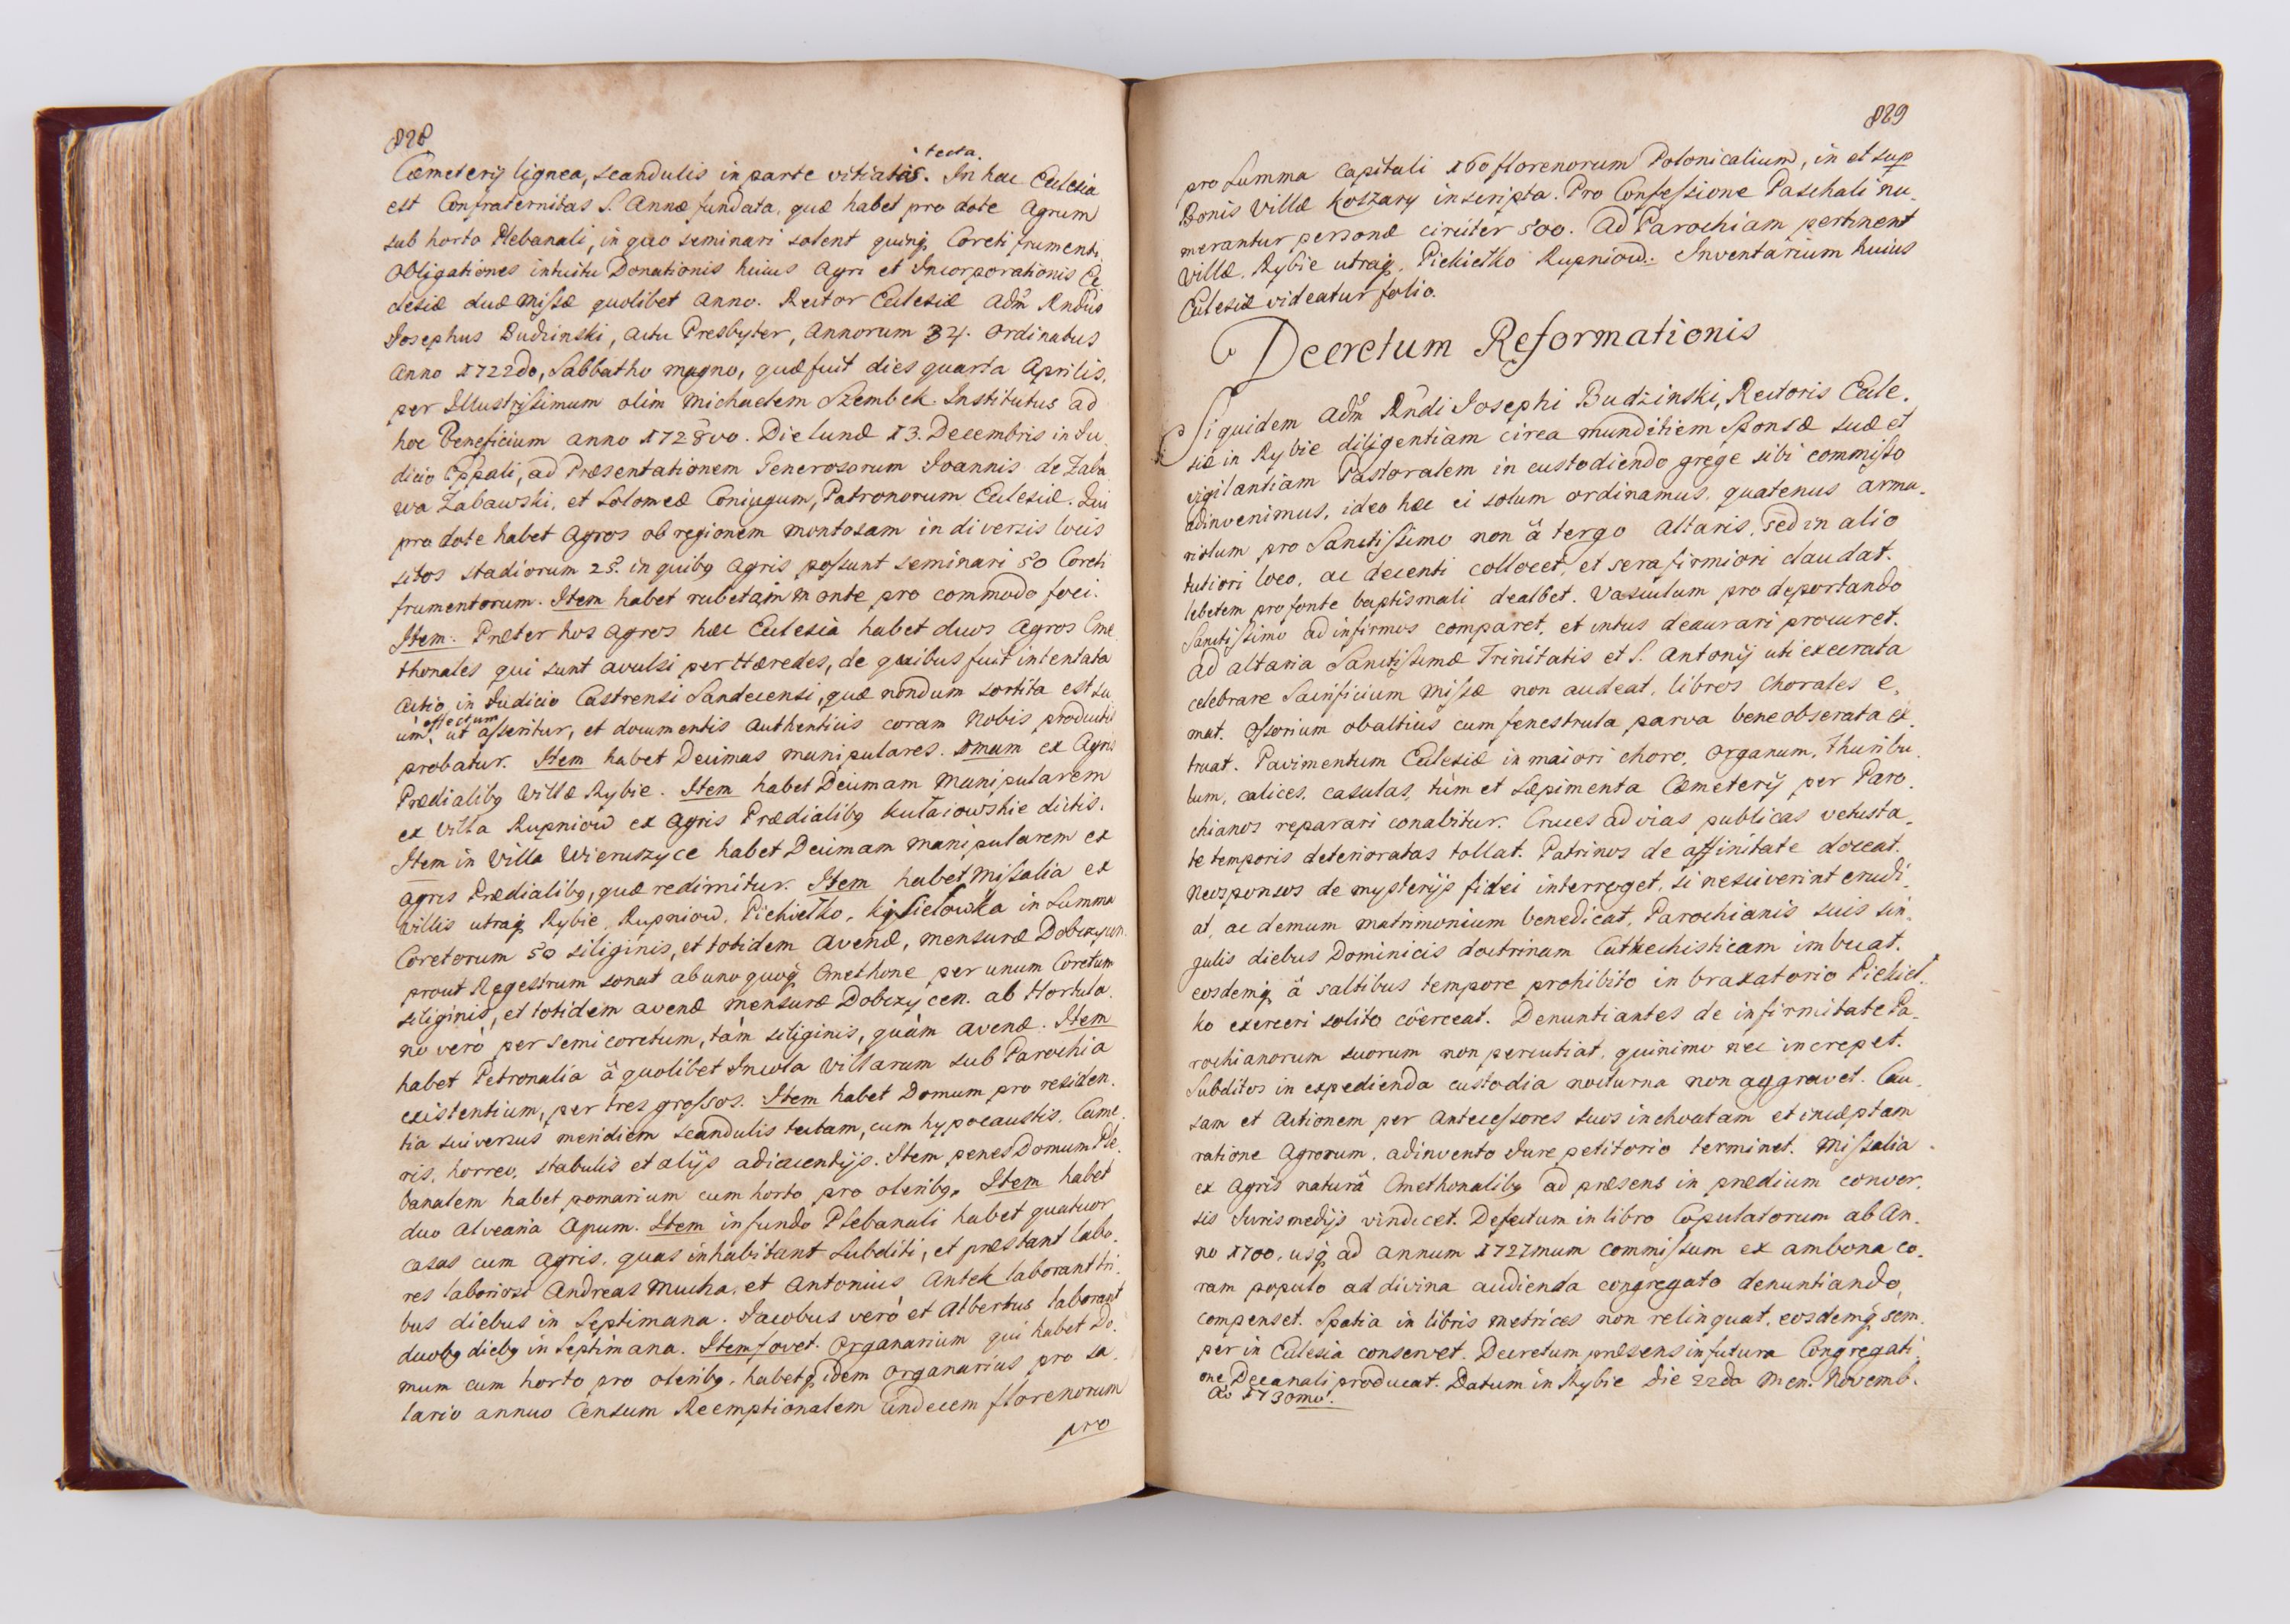 828
Cœmeterij lignea, scandulis in parte vitiatis tecta. In hac Ecclesia
est Confraternitas S. Annæ fundata, quæ habet pro dote Agrum
sub horto Plebanali, in quo seminari solent quinq; Coreti frumenti,
Obligationes intuitu Donationis huius Agri et Incorporationis Ec
clesiæ duæ Missæ quolibet Anno. Rector Ecclesiæ Adm Rndus
Josephus Budzinski, Actu Presbyter, Annorum 34. Ordinatus
Anno 1722do, Sabbatho magno, quæ fuit dies quarta Aprilis,
per Illustrissimum olim Michaelem Szembek. Institutus ad
hoc Beneficium anno 1728vo. Die lunæ 13. Decembris in Ju
dicio Eppali, ad Præsentationem Generosorum Joannis de Zaba
wa Zabawski, et Solomeæ Coniugum, Patronorum Ecclesiæ. Qui
pro dote habet Agros ob regionem montosam in diversis locis
sitos stadiorum 25. in quibg Agris possunt seminari 50 Coreti
frumentorum. Item habet rubetam in monte pro commodo foci.
Item. Præter hos Agros hæc Ecclesia habet duos Agros Cme
thonales qui sunt avulsi per Hæredes, de quibus fuit intentata
Actio in Judicio Castrensi Sandecensi, quæ nondum sortita est su
um effectum ut asseritur, et documentis authenticis coram Nobis productis
probatur. Item habet Decimas manipulares. 1mam ex Agris
Prædialibg Villæ Rybie. Item habet Decimam Manipularem
ex Villa Rupniow ex Agris Prædialibg Kułaiowskie dictis.
Item in Villa Wieruszyce habet Decimam manipularem ex
Agris Prædialibg, quæ redimitur. Item habet Missalia ex
Villis utraq; Rybie, Rupniow, Piekiełko, Kisielowka in Summa
Coretorum 50 siliginis, et totidem avenæ, mensuræ Dobczycen.
prout Regestrum sonat ab uno quoq; Cmethone per unum Coretum
siliginis, et totidem avenæ mensuræ Dobczycen. ab Hortula.
no verò per semicoretum, tàm siliginis, quàm avenæ. Item
habet Petronalia â quolibet Incola Villarum sub Parochia
existentium, per tres grossos. Item habet Domum pro residen.
tia sui versus meridiem scandulis tectam, cum hypocaustis, Came.
ris, horreo, stabulis et alijs adiacentijs. Item penes Domum Ple.
banalem habet pomarium cum horto pro oleribg. Item habet
duo Alvearia Apum. Item in fundo Plebanali habet quatuor
casas cum agris, quas inhabitant Subditi, et præstant labo.
res laboriosi Andreas Mucha, et Antonius Antek laborant tri.
bus diebus in Septimana. Jacobus verò et Albertus laborant
duobg diebg in Septimana. Item fovet Organarium qui habet Do.
mum cum horto pro oleribg, habetq; idem Organarius pro sa.
lario annuo Censum Reemptionalem Undecem florenorum
pro
829
pro Summa Capitali 160 florenorum Polonicalium, in et sup
Bonis Villæ Koszary inscripta. Pro Confessione Paschali nu.
merantur personæ circiter 500. Ad Parochiam pertinent
Villæ. Rybie utraq;. Piekiełko Rupniow. Inventarium huius
Ecclesiæ videatur folio.
Decretum Reformationis
Siquidem Adm Rndi Josephi Budzinski, Rectoris Eccle.
siæ in Rybie diligentiam circa munditiem Sponsæ suæ et
vigilantiam Pastoralem in custodiendo grege sibi commisso
adinvenimus, ideo hæc ei solum ordinamus, quatenus arma.
riolum pro Sanctissimo non â tergo Altaris, sed in alio
tutiori loco, ac decenti collocet, et sera firmiori claudat.
lebetem pro fonte baptismali dealbet. Vasculum pro deportando
Sanctissimo ad infirmos comparet, et intus deaurari procuret.
Ad altaria Sanctissimæ Trinitatis et S. Antonij uti execrata
celebrare Sacrificium Missæ non audeat, libros Chorales e.
mat. Ossorium ob altius cum fenestrula parva bene obserata ex.
truat. Pavimentum Ecclesiæ in maiori choro, Organum, Thuribu.
lum, calices, casulas, tùm et Sæpimenta Cœmeterij per Paro.
chianos reparari conabitur. Cruces ad vias publicas vetusta.
te temporis deterioratas tollat. Patrinos de affinitate doceat.
Neosponsos de mysterijs fidei interroget, si nesciverint erudi.
at, ac demum matrimonium benedicat, Parochianis suis sin.
gulis diebus Dominicis doctrinam Cathechisticam imbuat.
eosdemq; â saltibus tempore prohibito in braxatorio Piekieł.
ko exerceri solito côerceat. Denuntiantes de infirmitate Pa.
rochianorum suorum non percutiat, quinimo nec increpet.
Subditos in expedienda custodia nocturna non aggravet. Cau.
sam et Actionem per Antecessores suos inchoatam et incæptam
ratione Agrorum, adinvento Jure petitorio terminet. Missalia
ex Agris naturâ Cmethonalibg ad præsens in prædium conver.
sis Juris medijs vindicet. Defectum in libro Copulatorum ab An.
no 1700, usq; ad annum 1727mum commissum ex ambona co.
ram populo ad divina audienda congregato denuntiando,
compenset. Spatia in libris metrices non relinquat, eosdemq; sem.
per in Ecclesia conservet. Decretum præsens in futura Congregati.
one Decanali producat. Datum in Rybie Die 22da Men. Novemb.
Ao 1730mo.